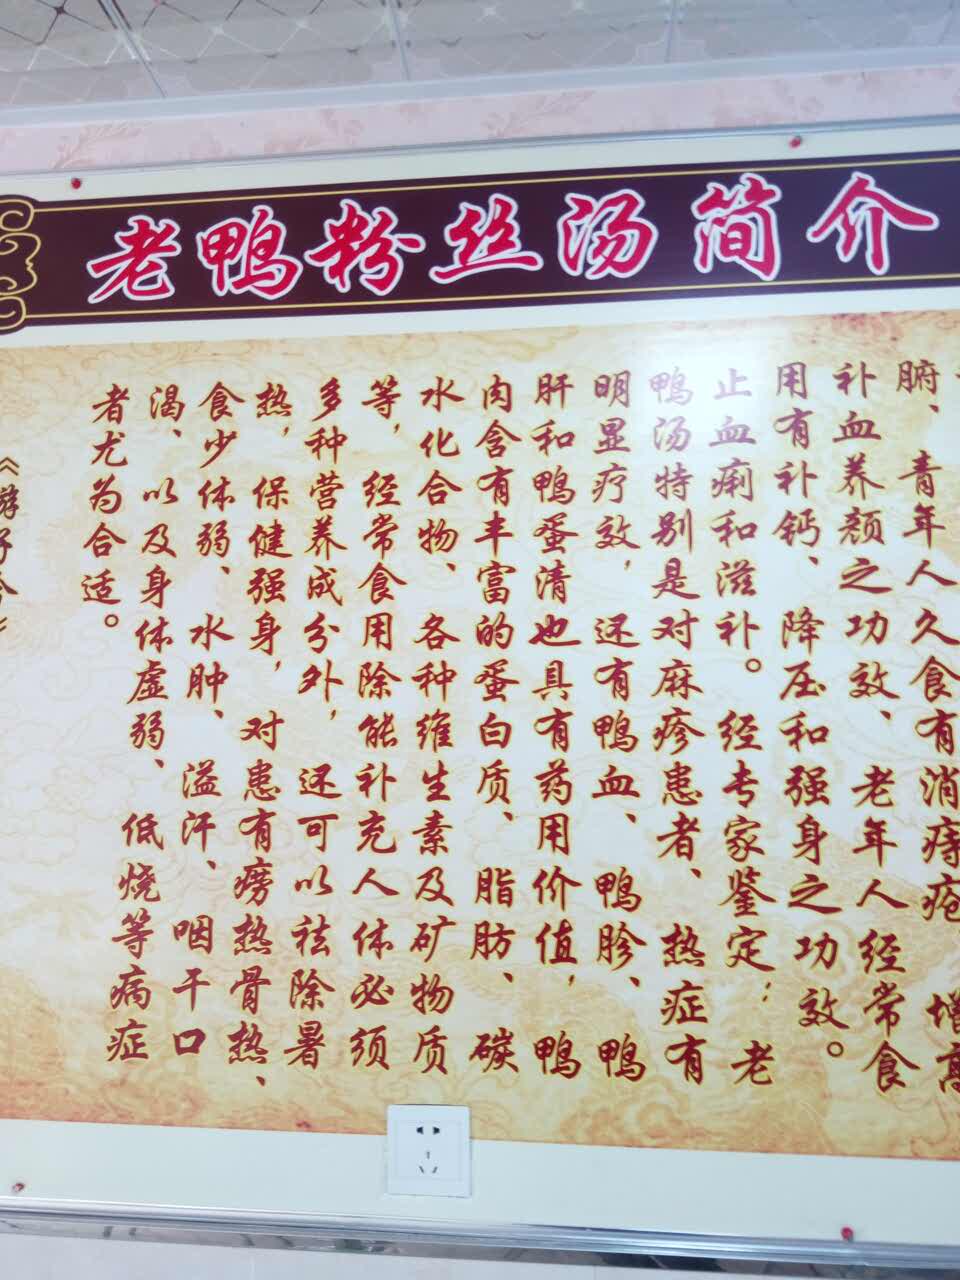 老鸭粉丝汤简介
腑、青年人久食有消痔疮、增高
补血养颜之功效、老年人经常食
用有补钙、降压和强身之功效。
止血痢和滋补。经专家鉴定：老
鸭汤特别是对麻疹患者、热症有
明显疗效，还有鸭血、鸭胗、鸭
肝和鸭蛋清也具有药用价值，鸭
肉含有丰富的蛋白质、脂肪、碳
水化合物、各种维生素及矿物质
等，经常食用除能补充人体必须
多种营养成分外，还可以祛除暑
热，保健强身，对患有痨热骨热、
食少体弱、水肿、溢汗、咽干口
渴、以及身体虚弱、低烧等病症
者尤为合适。